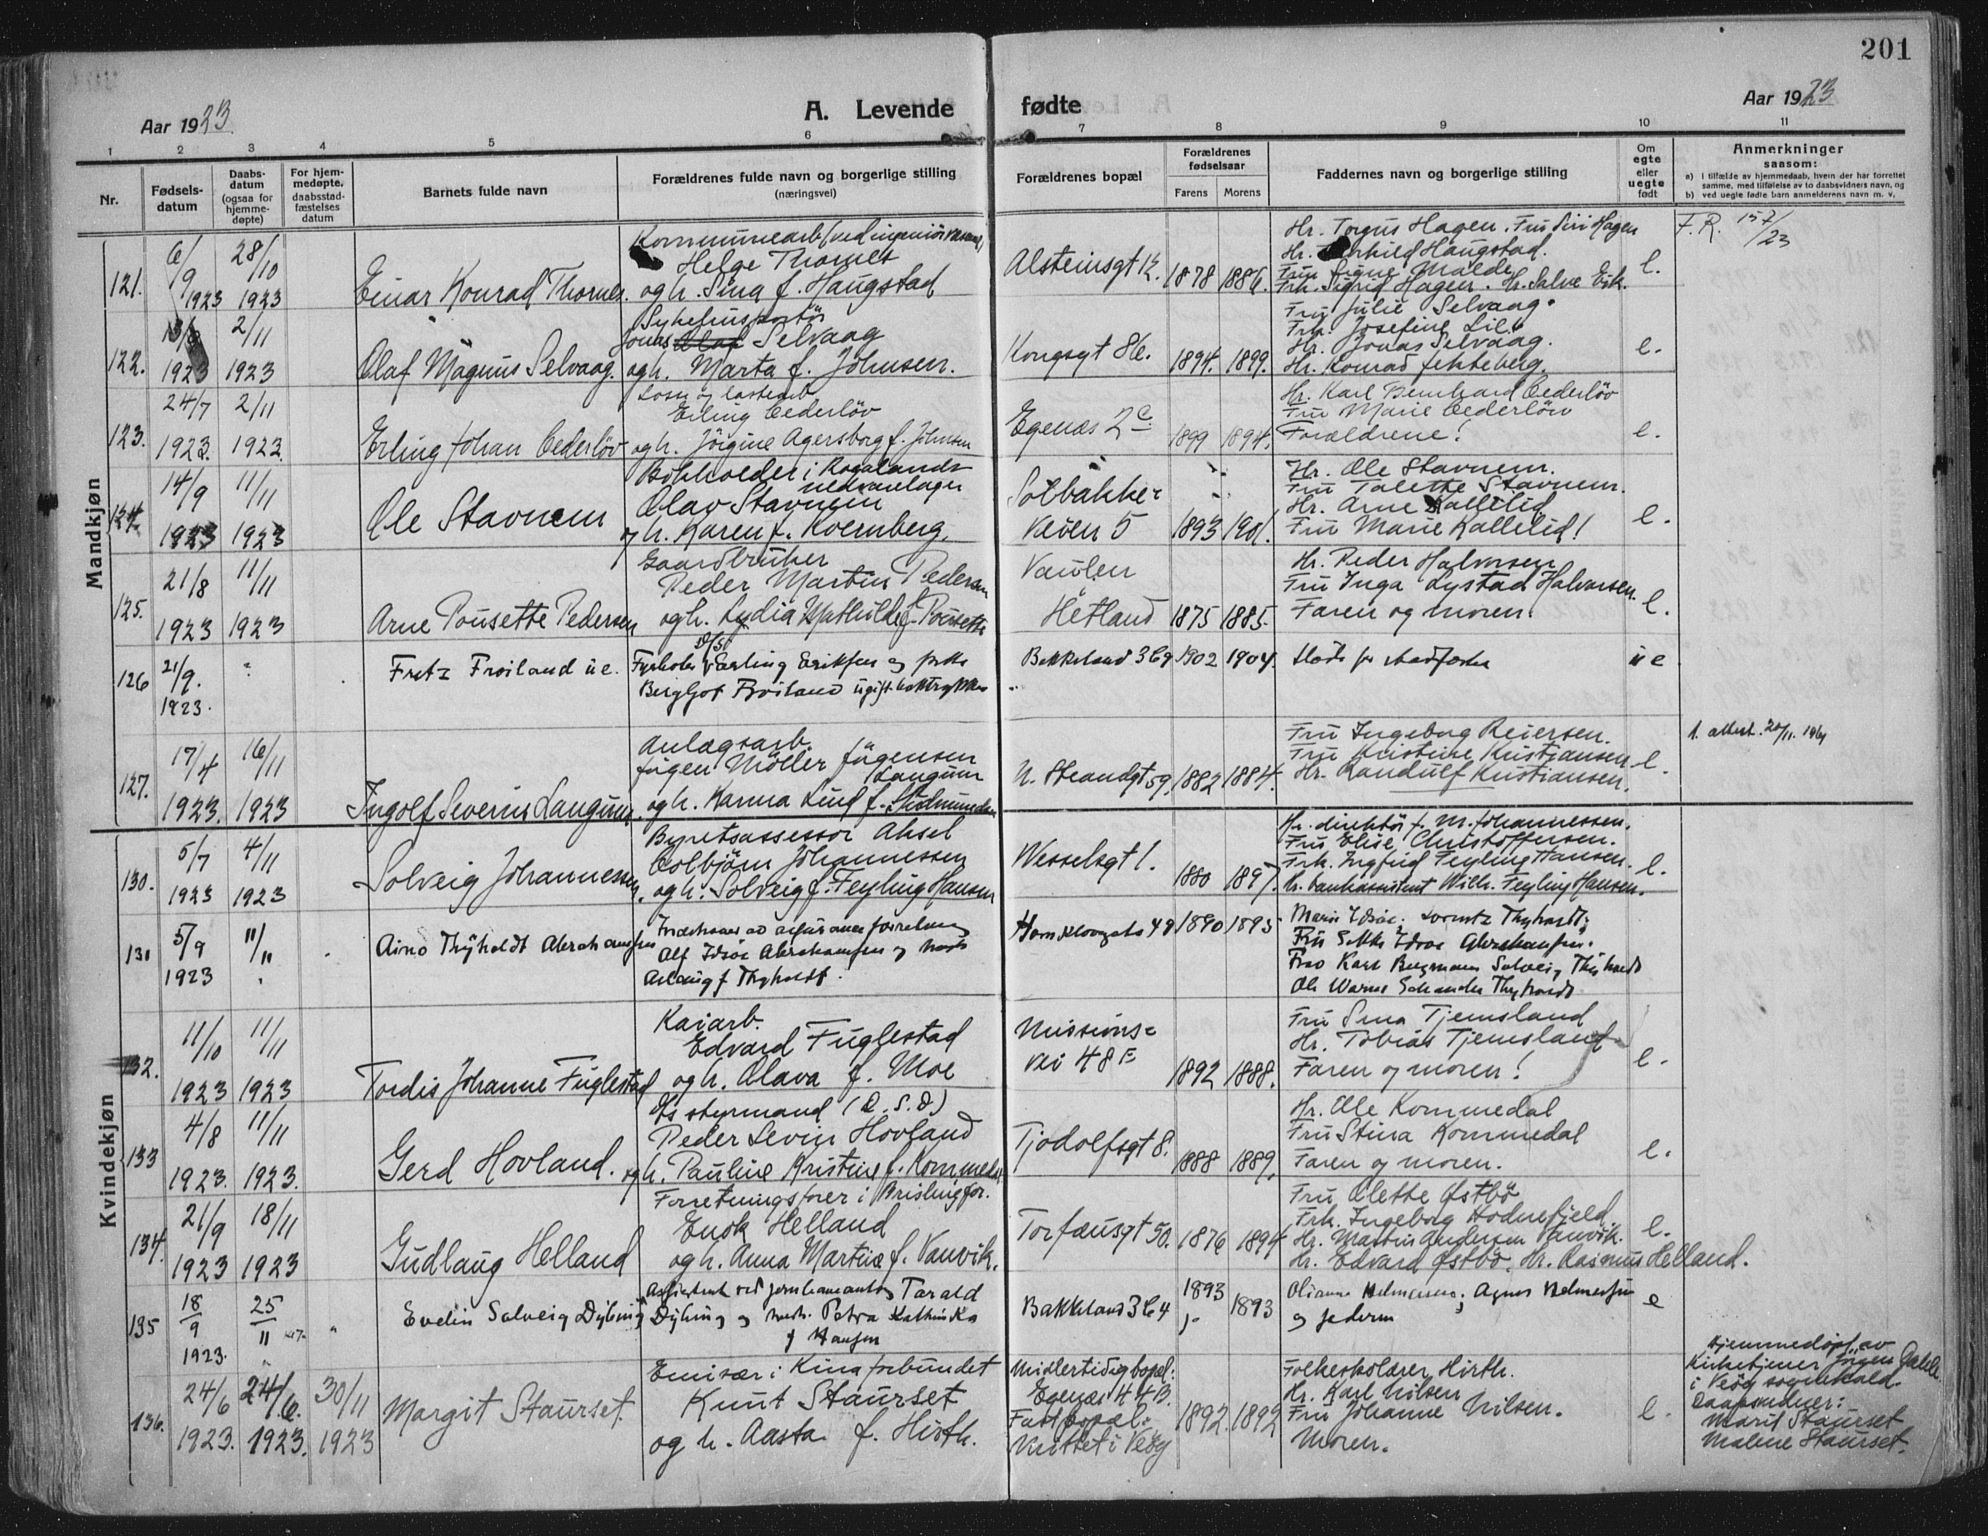 201
Aar 1923.
A. Levende fødte
Aar 1923
1 2 3 4 5 6 7 8 9 10 11
Nr.
Fødsels-
datum
Daabs-
datum
(ogsaa for
hjemme-
døpte)
For hjem-
medøpte,
daabsstad-
fæstelses
datum
Barnets fulde navn
Forældrenes fulde navn og borgerlige stilling
(næringsvei)
Forældrenes bopæl
Forældrenes
fødselsaar
Farens Morens
Faddernes navn og borgerlige stilling
Om
egte
eller
uegte
født
Anmerkninger
saasom:
a) I tilfælde av hjemmedaab, hvem der har forrettet
samme, med tilføielse av to daabsvidners navn, og
b) ved uegte fødte barn anmelderens navn m. v.
Mandkjøn
121.
6/9 1923
28/10 1923
Einar Konrad Thornes.
Helge Thornes
og h. Sina f. Haugstad
Alsteinsgt 12.
1878 1886.
Hr. Torgus Hagen. Fru Siri Hagen
Haugstad.
Fru Signe Malde
Frk. Sigrid Hagen. Hr. Salve Eik.
e.
F. R. 157/23
122.
1923
2/11 1923
Olaf Magnus Selvaag.
Jonas Selvaag
og h. Marta f. Johnsen.
Kongsgt 86.
1894. 1899.
Fru Julie Selvaag.
Frk. Josefine Lil
Hr. Jonas Selvaag.
Hr. Konrad Jekteberg.
e.
123.
24/7 1923.
2/11 1923.
Erling Johan Cederløv
Losse og lastearb
Erling Cederløv
og h. Jörgine Agersborg f. Johnsen
Egenæs 2c
1899 1894.
Hr. Karl Bernhard Cederløv
Fru Marie Cederløv
Forældrene!
e.
124.
14/9 1923
11/11 1923
Ole Stavnem
Bokholder i Rogalands
Olav Stavnem
og h. Karen f. Kvernberg.
Solbakke-
veien 5
1893 1901.
Hr. Ole Stavnem.
Fru Talette Stavnem.
Hr. Arne Kallelid
Fru Marie Kallelid!
e.
125.
21/8 1923
11/11 1923
Arne Pousette Pedersen
Gaardbruker
Peder Martin Pedersen
og h. Lydia Mathilde f. Pousette
Vaulen
Hetland
1875 1885.
Hr. Peder Halvorsen
Fru Inga Lystad Halvorsen.
Faren og moren!
e.
126
21/9. 1923.
Fretz Froiland ue.
Erling Eriksen og
Froiland ugift
Bakkeland 36
1902 1904.
ue
127.
17/4 1923.
16/11 1923
Ingolf Severin Langum.
Anlægsarb.
Jörgen Möller Jörgensen
Langum
og h. Karina Lind f.
N. Strandgt 59.
1882 1884.
Fru Ingeborg Reiersen.
Fru Kristine Kristiansen
Hr. Randulf Kristiansen.
e.
1. attest. 20/11. 1961
Kvindekjøn
130.
5/7 1923
4/11 1923
Solveig Johannessen
Byretsassessor Aksel
Colbjörn Johannessen
og h. Solveig f. Feyling Hansen
Wesselsgt 1.
1880 1897.
Hr. direktör f. M. Johannessen.
Fru Elise Christoffersen.
Frk. Ingrid Feyling Hansen.
Hr. bankassistent Wilh. Feyling Hansen.
e.
131
5/9 1923
11/11
Aino Thyholdt Abrahamsen
Alf Idsöe Abrahamsen og hustr
Aslaug f Thyholdt.
49
1890 1895
Marie Idsöe.
Karl Bergmann Solveig Thyholdt
132.
11/10 1923
11/11 1923
Tordis Johanne Fuglestad
Kaiarb.
Edvard Fuglestad
og h. Olava f. Moe
Missions-
vei 48E
1892 1888.
Fru Sina Tjemsland
Hr. Tobias Tjemsland
Faren og moren!
e.
133
4/8 1923.
11/11 1923.
Gerd Hovland.
styrmand (D.S.D.)
Peder Sevin Hovland
og h. Pauline Kristine f. Kommedal
Tjodolfsgt 8.
1888 1889.
Hr. Ole Kommedal
Fru Stina Kommedal
Faren og moren.
e.
134.
21/9 1923
18/11 1923
Gudlaug Helland
Forretningsfører i Brislingfor.
Enok Helland
og h. Anna Martine f. Vanvik.
Torfæusgt 50.
1876 1894
Fru Olette Østbö
Frk. Ingeborg Hodnefjeld
Hr. Martin Andersen Vanvik.
Hr. Edvard Østbö. Hr. Rasmus Helland.
e.
135
18/9 1923.
25/11
Evelin Solveig Dybing
Assistent ved Tarald
Dybing og hustr. Petra Kathinka
f Hansen
Bakkeland 36
1893 1893
og faderen
e
136.
24/6 1923.
24/6. 1923.
30/11 1923
Margit Staurset.
Emisær i Kinaforbundet
Knut Staurset
og h. Aasta f. Hirth.
Midlertidig bopæl:
Egenæs 44B.
Fast bopæl:
i Veöy
1892. 1892
Folkeskolelærer Hirth.
Hr. Karl Nilsen
Fru Johanne Nilsen.
Moren.
e.
Hjemmedöpt av
Kirketjener Jörgen
i Veöy sognekald.
Daapsvidner:
Marit Staurset
Malene Staurset.